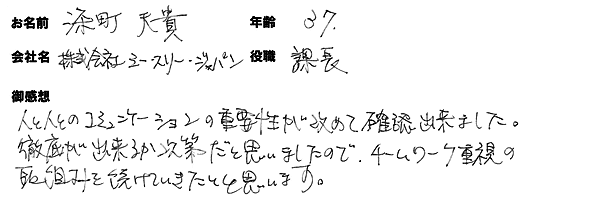 お名前 深町 天貴 年齢 37.
会社名 株式会社ユースリー・ジャパン 役職 課長
御感想
人と人とのコミュニケーションの重要性が改めて確認出来ました。
徹底が出来るか次第だと思いましたので、チームワーク重視の
取組みを続けていきたいと思います。